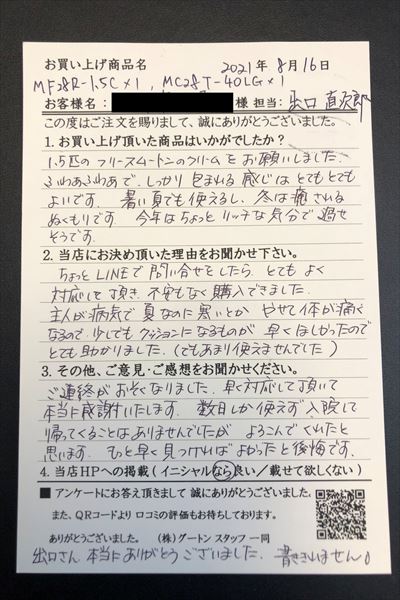 お買い上げ商品名 2021年 8月16日
MF28R-1.5C×1, MC28T-40LG×1
お客様名： 様 担当：出口 直次郎
この度はご注文を賜りまして、誠にありがとうございました。
1. お買い上げ頂いた商品はいかがでしたか？
1.5匹のフリースムートンのクリームをお願いしました。
ふわぁふわぁで、しっかり包まれる感じはとてもとても
よいです. 暑い夏でも使えるし、冬は癒される
ぬくもりです. 今年はちょっとリッチな気分で過せ
そうです.
2. 当店にお決め頂いた理由をお聞かせ下さい。
ちょっとLINEで問い合せをしたら、とてもよく
対応して頂き、不安もなく購入できました.
主人が病気で夏なのに寒いとか やせて体が痛く
なるので、少しでもクッションになるものが早くほしかったので
とても助かりました. (でもあまり使えませんでした)
3. その他、ご意見・ご感想をお聞かせください。
ご連絡がおそくなりました. 早く対応して頂いて
本当に感謝いたします. 数日しか使えず入院して
帰ってくることはありませんでしたが よろこんでくれたと
思います. もっと早く見つければよかったと後悔です.
4. 当店HPへの掲載（イニシャルなら良い／載せて欲しくない）
■ アンケートにお答え頂きまして 誠にありがとうございました。
また、QRコードより 口コミの評価もお待ちしております。
ありがとうございました。 （株）グートン スタッフ 一同
出口さん 本当にありがとうございました. 書ききれません♪